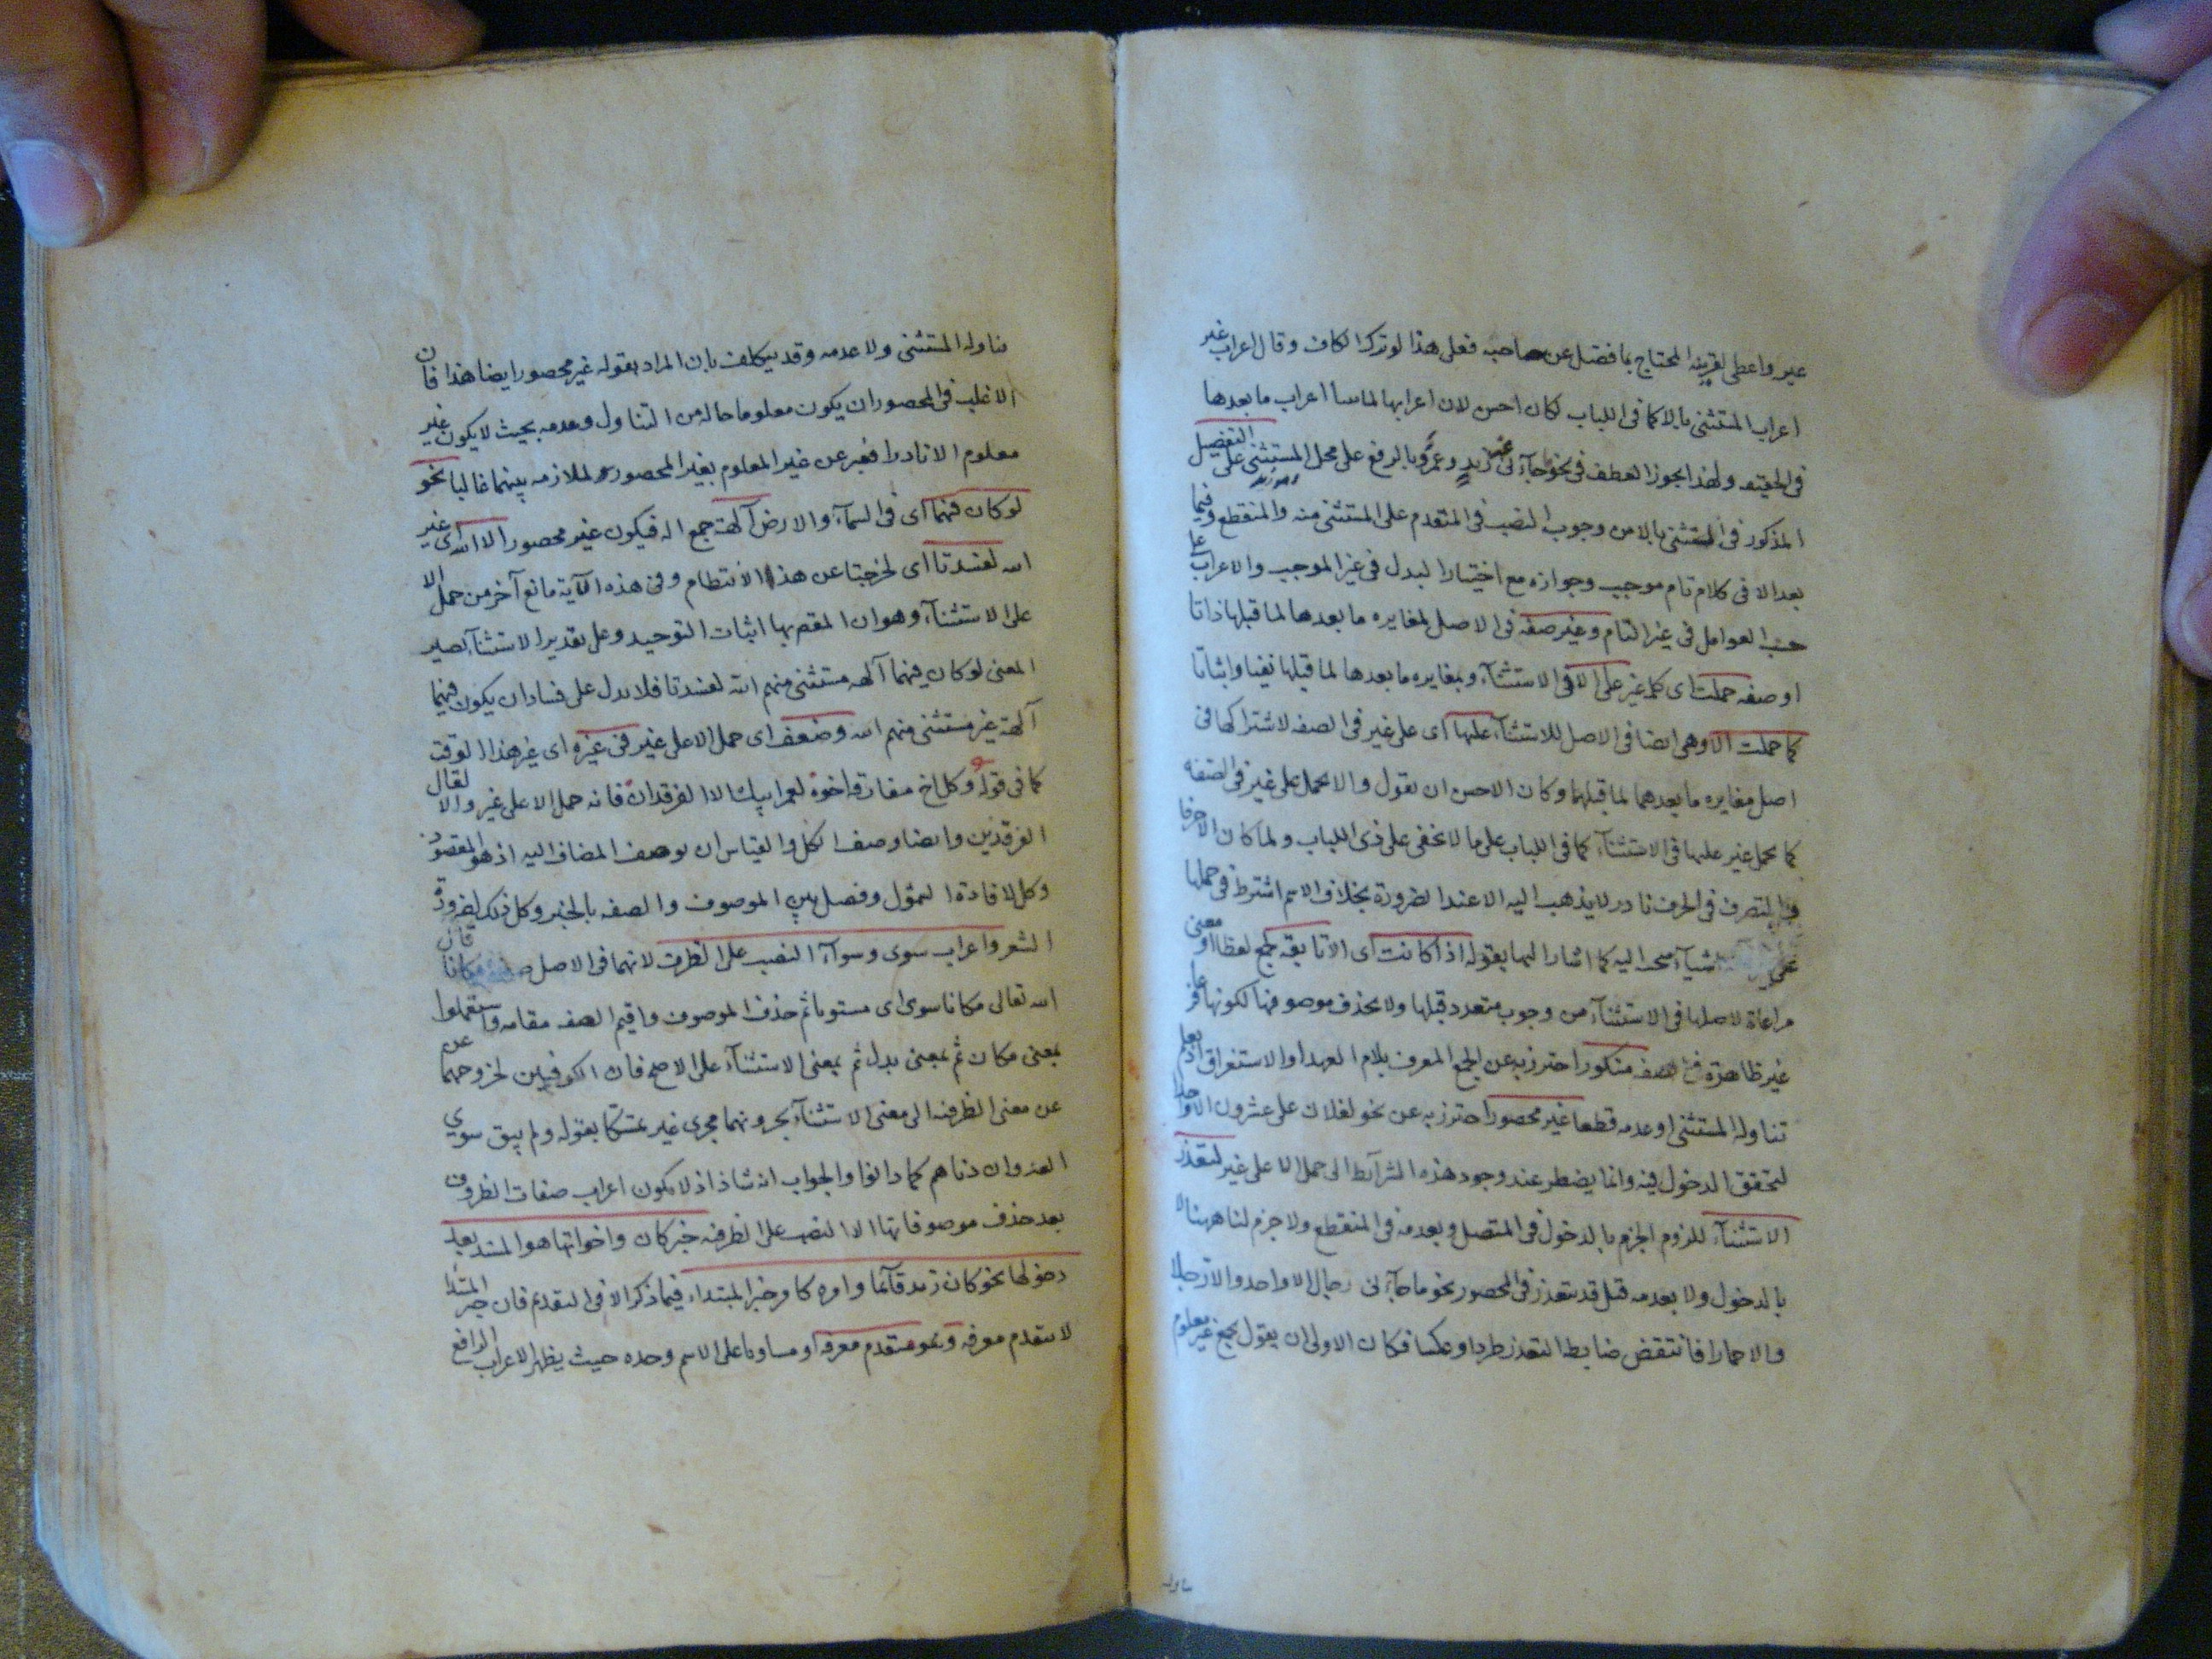 غيره واعطى لقرينه المحتاج بما فضل عن صاحبه فعلى هذا لو ترك الكاف وقال اعراب غير
اعراب المستثنى بالا كما فى اللباب لكان احسن لان اعرابها اعراب ما بعدها
فى الحقيقه ولهذا يجوز العطف فى نحو ما جاءنى غير زيدٍ وعمرٌو بالرفع على محل المستثنى على التفصيل
المذكور فى المستثنى بالا من وجوب النصب فى المتقدم على المستثنى منه والمنقطع وفيما
بعد الا فى كلام تام موجب وجوازه مع اختيار البدل فى غير الموجب والاعراب على
حسب العوامل فى غير التام وغير صفه فى الاصل لمغايره ما بعدها لما قبلها ذاتا
او صفه حملت اى كلمه غير على الا فى الاستثناء وبمغايره ما بعدها لما قبلها نفيا واثباتا
كما حملت الا وهى ايضا فى الاصل للاستثناء عليها اى على غير فى الصفه لاشتراكها فى
اصل مغايره ما بعدهما لما قبلهما وكان الاحسن ان يقول والا يحمل على غير فى الصفه
كما يحمل غير عليها فى الاستثناء كما فى اللباب على ما لا يخفى على ذوى اللباب ولما كان الا حرفا
التصرف فى الحرف نادر لا يذهب اليه الا عند الضرورة بخلاف الاسم اشترط فى حملها
على اشياء كما اشار اليها بقوله اذا كانت اى الا تابعة لجمع لفظا او معنى
مراعاة لاصلها فى الاستثناء من وجوب متعدد قبلها ولا يحذف موصوفها لكونها
غير ظاهرة فى الصفه منكور احترز به عن الجمع المعرف بلام العهد او الاستغراق اذ يعلم
تناوله المستثنى او عدمه قطعا غير محصور احترز به عن نحو لفلان على عشرون الا واحدا
لتحقق الدخول فيه وانما يضطر عند وجود هذه الشرائط الى حمل الا على غير لتعذر
الاستثناء للزوم الجزم بالدخول فى المتصل وبعدمه فى المنقطع ولا جزم لنا ههنا لا
بالدخول ولا بعدمه قيل قد يتعذر فى المحصور نحو ما جاءنى رجال الا واحد والا رجلا
والا حمارا فانتقض ضابط التعذر طردا وعكسا فكان الاولى ان يقول لجمع غير معلوم
تناوله المستثنى ولا عدمه وقد يتكلف بان المراد بقوله غير محصور ايضا هذا فان
الاغلب فى المحصور ان يكون معلوما حاله من التناول وعدمه بحيث لا يكون غير
معلوم الا نادرا فعبر عن غير المعلوم بغير المحصور لملازمه بينهما غالبا نحو
لو كان فيهما اى فى السماء والارض آلهة جمع اله فيكون غير محصور الا الله اى غير
الله لفسدتا اى لخرجتا عن هذا الانتظام وفى هذه الآية مانع آخر من حمل الا
على الاستثناء وهو ان المقصود بها اثبات التوحيد وعلى تقدير الاستثناء يصير
المعنى لو كان فيهما آلهه مستثنى منهم الله لفسدتا فلا يدل على فساد ان يكون فيهما
آلهة غير مستثنى منهم الله وضعف اى حمل الا على غير فى غيره اى غير هذا الوقت
كما فى قوله وكل اخ مفارقه اخوه لعمر ابيك الا الفرقدان فانه حمل الا على غير والا لقال
الفرقدين وايضا وصف الكل والقياس ان يوصف المضاف اليه اذ هو المقصود
وكل لافادة الشمول وفصل بين الموصوف والصفه بالخبر وكل ذلك لضرورة
الشعر واعراب سوى وسواء النصب على الظرف لانهما فى الاصل صفة مكانا قال
الله تعالى مكانا سوى اى مستويا ثم حذف الموصوف واقيم الصفه مقامه واستعملوا
بمعنى مكان ثم بمعنى بدل ثم بمعنى الاستثناء على الاصح فان الكوفيين لخروجهما
عن معنى الظرفيه الى معنى الاستثناء يجرونهما مجرى غير تمسكا بقوله ولم يبق سوى
العدوان دناهم كما دانوا والجواب انه شاذ اذ لا يكون اعراب صفات الظروف
بعد حذف موصوفاتها الا النصب على الظرفيه خبر كان واخواتها هو المسند بعد
دخولها نحو كان زيد قائما وامره كامر خبر المبتداء فيما ذكر الا فى التقديم فان خبر المبتدا
لا يتقدم معرفه وهو يتقدم معرفه او مساويا على الاسم وحده حيث يظهر الاعراب الرافع